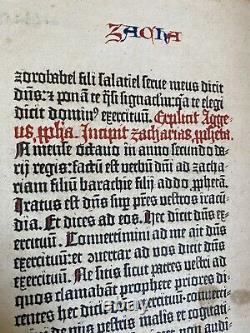 ZACHA
zorobabel fili salatiel serue meus dicit
dn̄s: et ponā te q̄si signaculū· q̄a te elegi
dicit domin⁹ exercituū. Explicit Agge-
us, ꝓph̄a. Incipit zacharias, ꝓph̄eta.
In mense octauo in anno secundo da-
rij regis: factū est verbū dn̄i ad zacha-
riam filiū barachie filij addo ꝓph̄etā.
Iratus est dn̄s sup pr̄es vestros iracū-
dia. Et dices ad eos. Hec dicit dn̄s ex-
ercituū. Conuertimini ad me ait dn̄s
exercituū: et ouertar ad vos dicit dn̄s
exercituū. Ne sitis sicut patres vestri ad
quos clamabāt prophete priores di-
centes. Hec dicit dn̄s exercituū· conuerti-
mini de vijs vestris malis et cogitati-